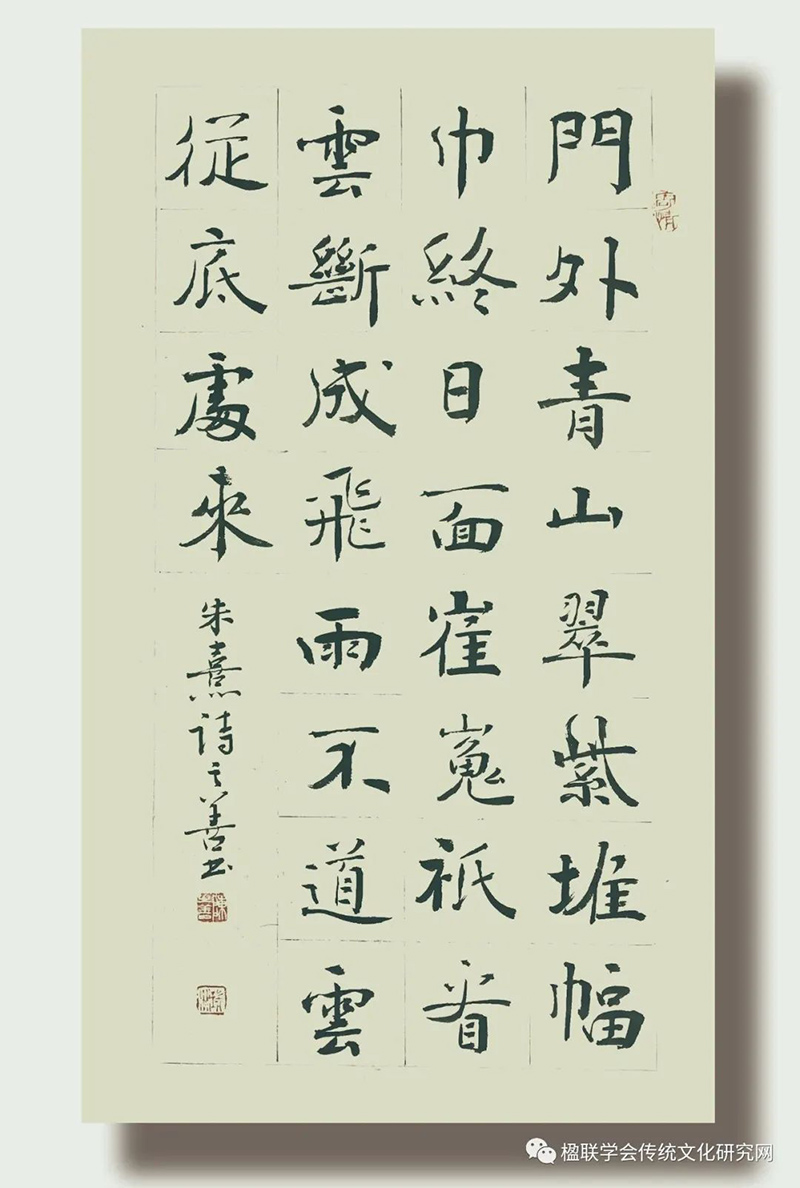 門外青山翠紫堆幅
巾終日面崔嵬祇看
雲斷成飛雨不道雲
從底處來
朱熹詩之善书
楹联学会传统文化研究网